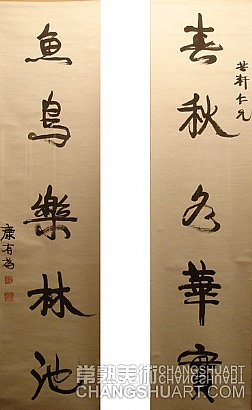 春秋各華實
軒仁兄
魚鳥樂林池
康有為
常熟美術 CHANGSHUART